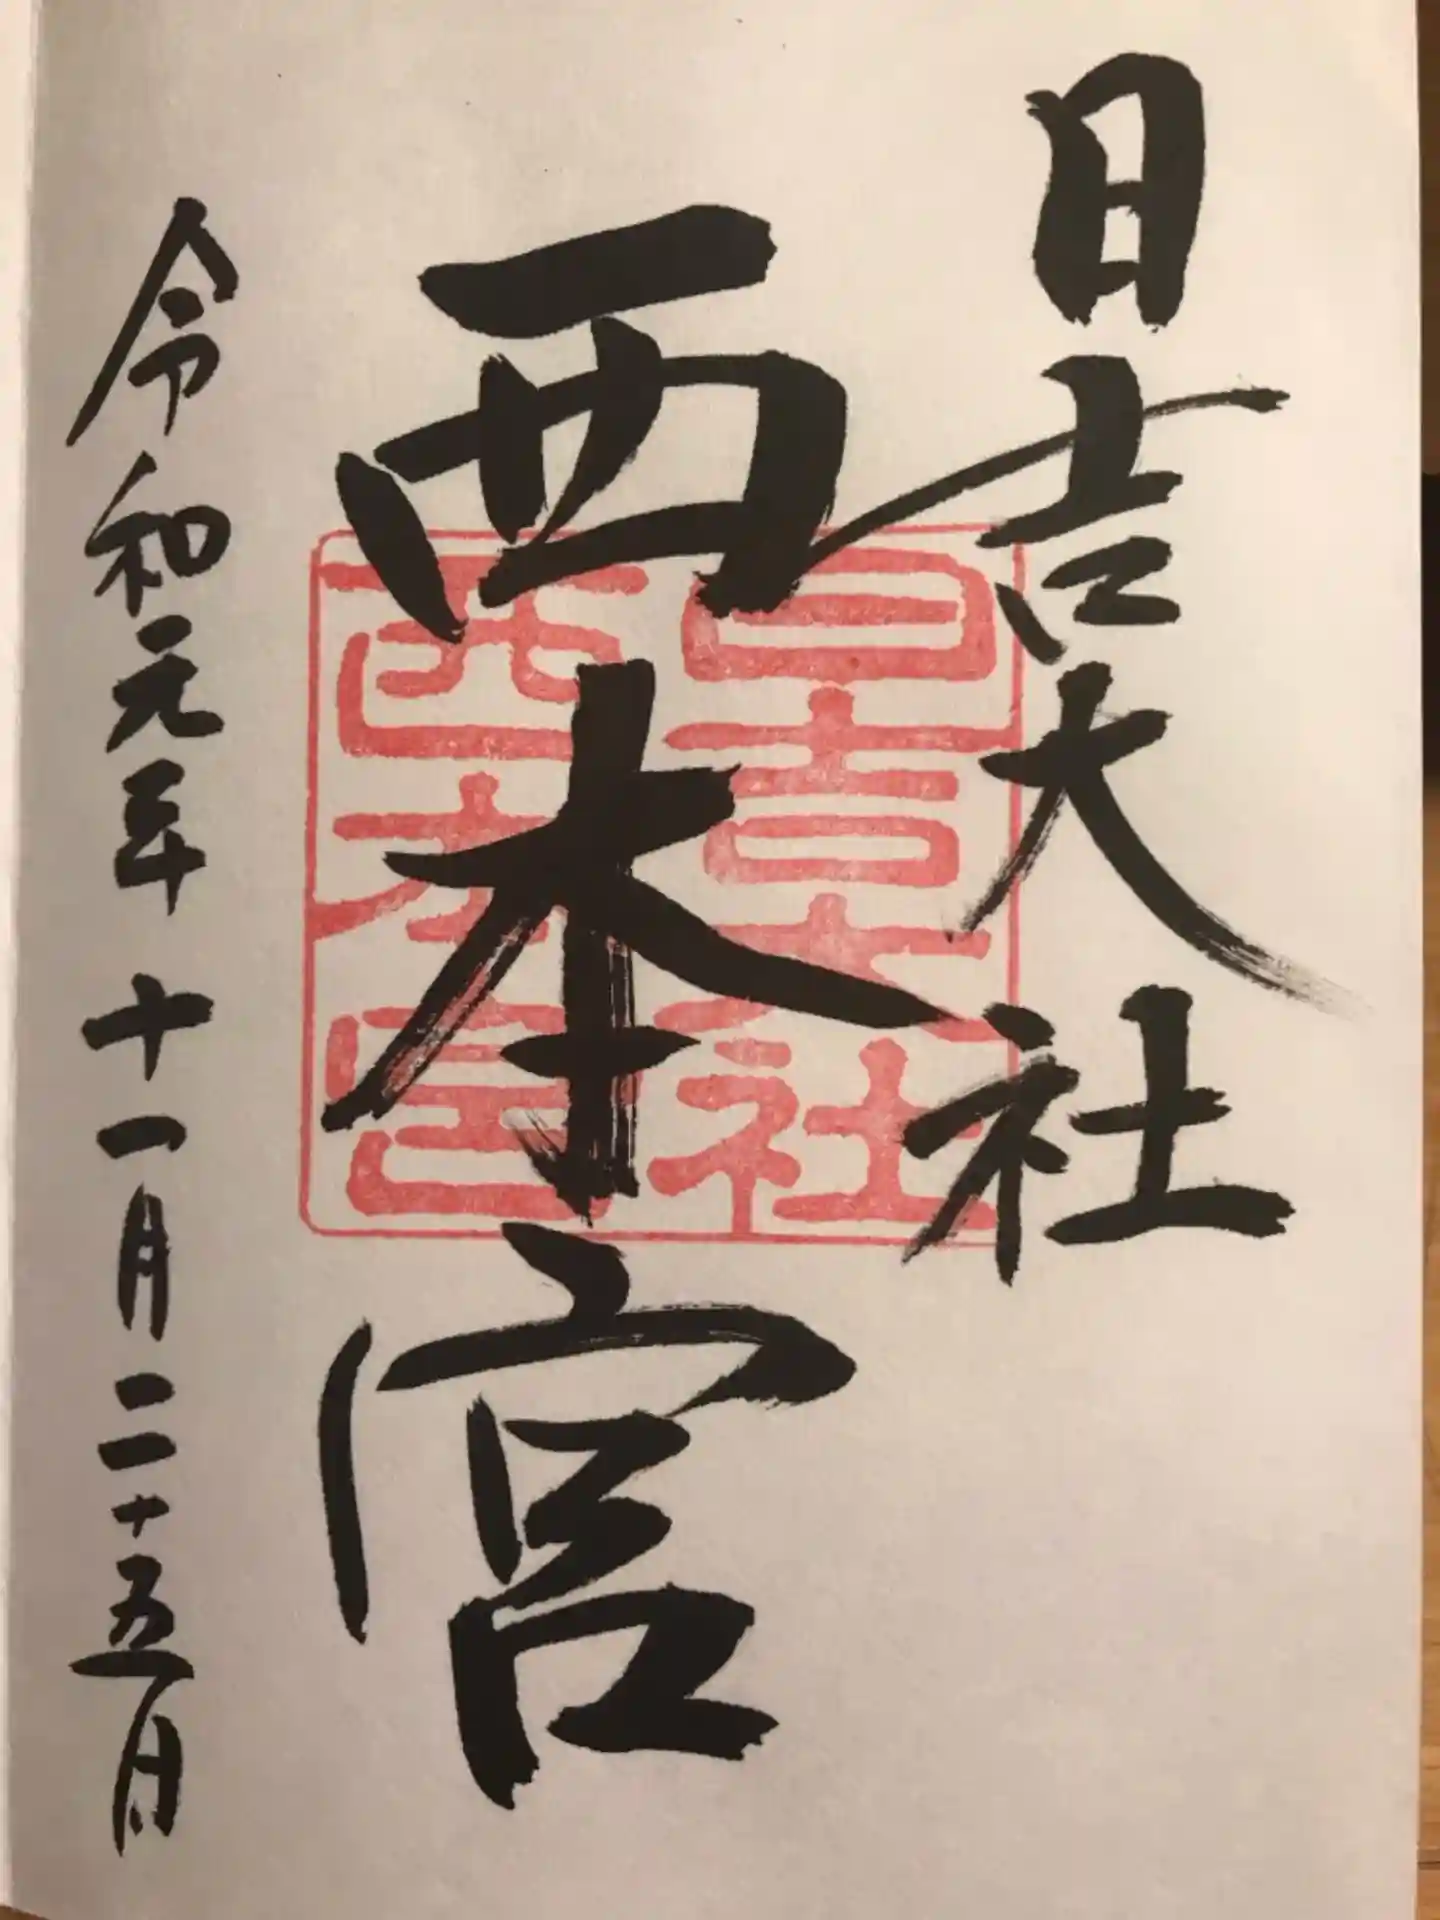 日吉大社
西本宮
令和元年十一月二十五日
日吉大社
西本宮